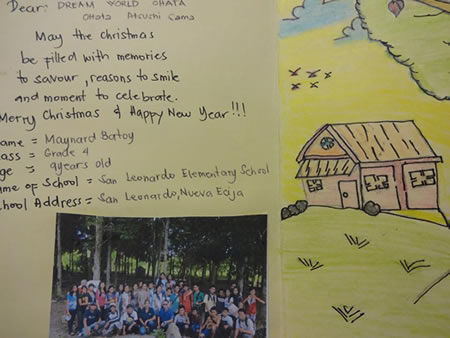 Dear: DREAM WORLD OHATA
Ohata Atsushi Sama
May the christmas
be filled with memories
to savour, reasons to smile
and moment to celebrate.
Merry Christmas & Happy New Year!!!
ame = Maynard Batoy
ass = Grade 4
ge = 9years old
ame of School = San Leonardo Elementary School
chool Address = San Leonardo, Nueva Ecija